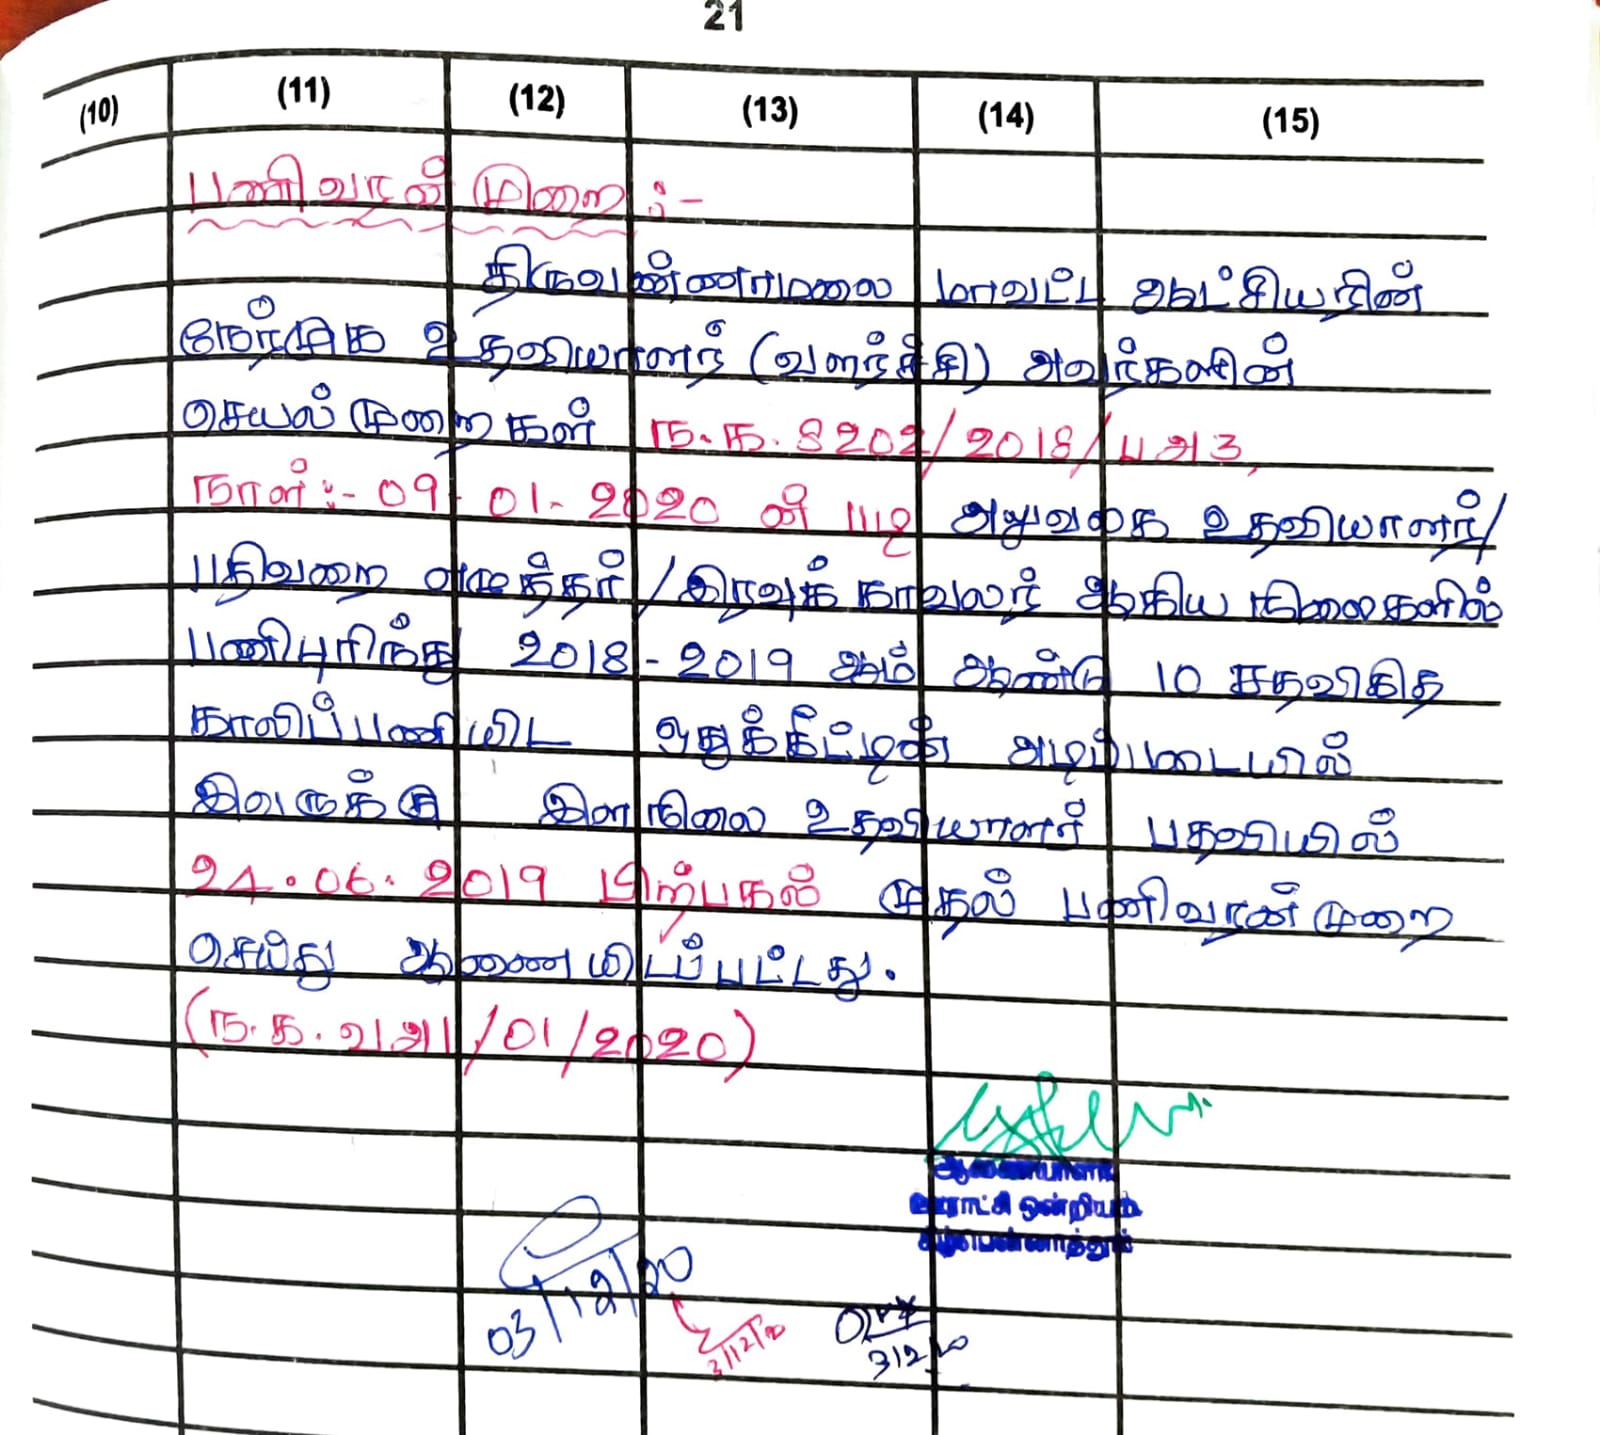 21
(10) (11) (12) (13) (14) (15)
பணிவரன் முறை :-
திருவண்ணாமலை மாவட்ட ஆட்சியரின்
நேர்முக உதவியாளர் (வளர்ச்சி) அவர்களின்
செயல்முறைகள் ந.க. 8202/2018/பஅ3,
நாள் :- 09-01-2020 ன் படி அலுவலக உதவியாளர்/
பதிவறை எழுத்தர் /இரவுக் காவலர் ஆகிய நிலைகளில்
பணிபுரிந்து 2018-2019 ஆம் ஆண்டு 10 சதவிகித
காலிப்பணியிட ஒதுக்கீட்டின் அடிப்படையில்
இவருக்கு இளநிலை உதவியாளர் பதவியில்
24.06.2019 பிற்பகல் முதல் பணிவரன் முறை
செய்து ஆணையிடப்பட்டது.
(ந.க. வஅ1/01/2020)
ஆணையாளர்
ஊராட்சி ஒன்றியம்
03/12/20
3/12/20
3/12/20